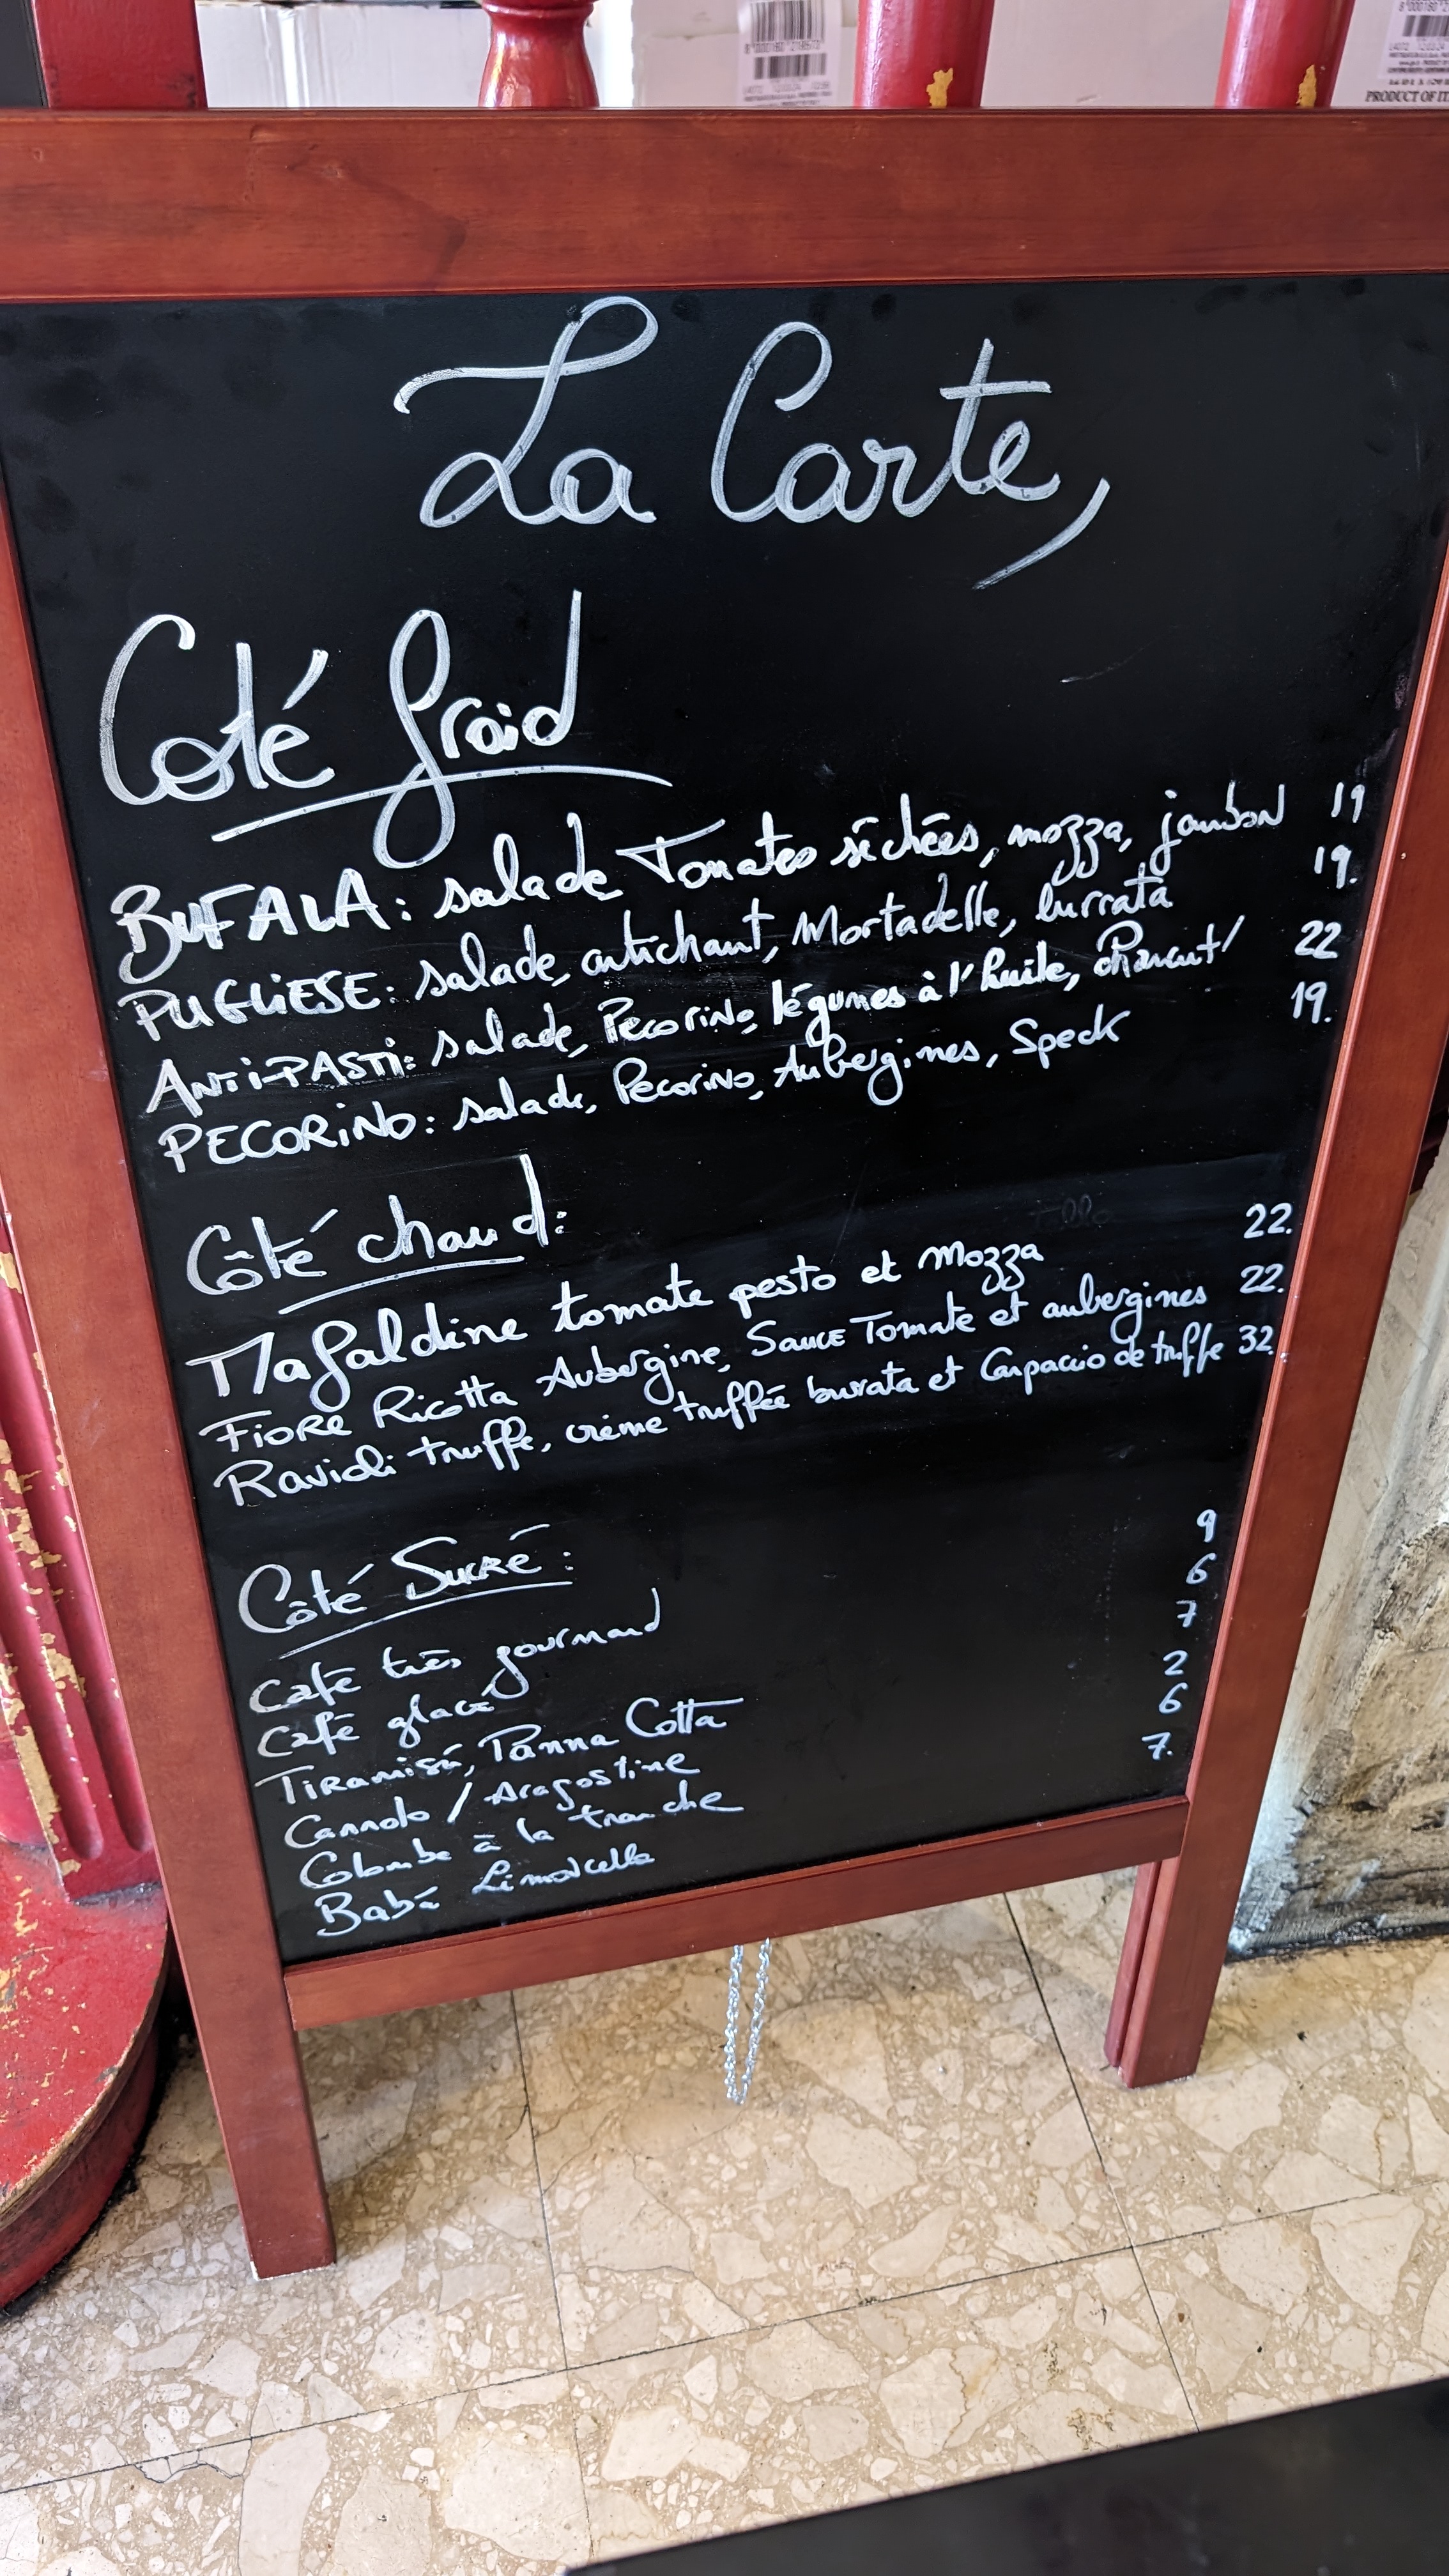 PRODUCT OF IT
La Carte,
Coté froid
BUFALA: salade Tomates séchées, mozza, jambon 19
PUGLIESE: salade, artichaut, Mortadelle, burrata 19.
ANTI-PASTI: salade, Pecorino, légumes à l'huile, charcut/ 22
PECORINO: salade, Pecorino, Aubergines, Speck 19.
Côté chaud:
Mafaldine tomate pesto et Mozza 22.
FIORE Ricotta Aubergine, Sauce Tomate et aubergines 22.
Ravioli truffe, crème truffée burrata et Carpaccio de truffe 32.
Côté Sucré:
Café très gourmand 9
Café glacé 6
Tiramisú, Panna Cotta 7
Cannolo / Aragostine 2
Colombe à la tranche 6
Babá Limoncello 7.